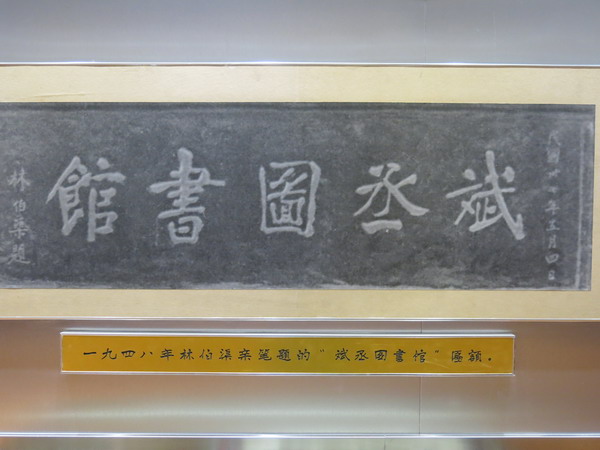 民國卅七年五月四日
斌丞圖書館
林伯渠題
一九四八年林伯渠亲笔题的“斌丞图書馆”匾额。